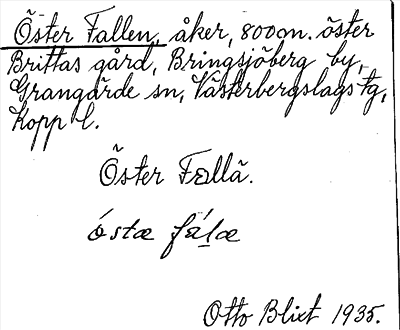 Öster Fallen, åker, 800 m. öster
Brittas gård, Bringsjöberg by,
Grangärde sn, Västerbergslags tg,
Kopp l.
Öster Fallä.
óstæ fáḷæ
Otto Blixt 1935.